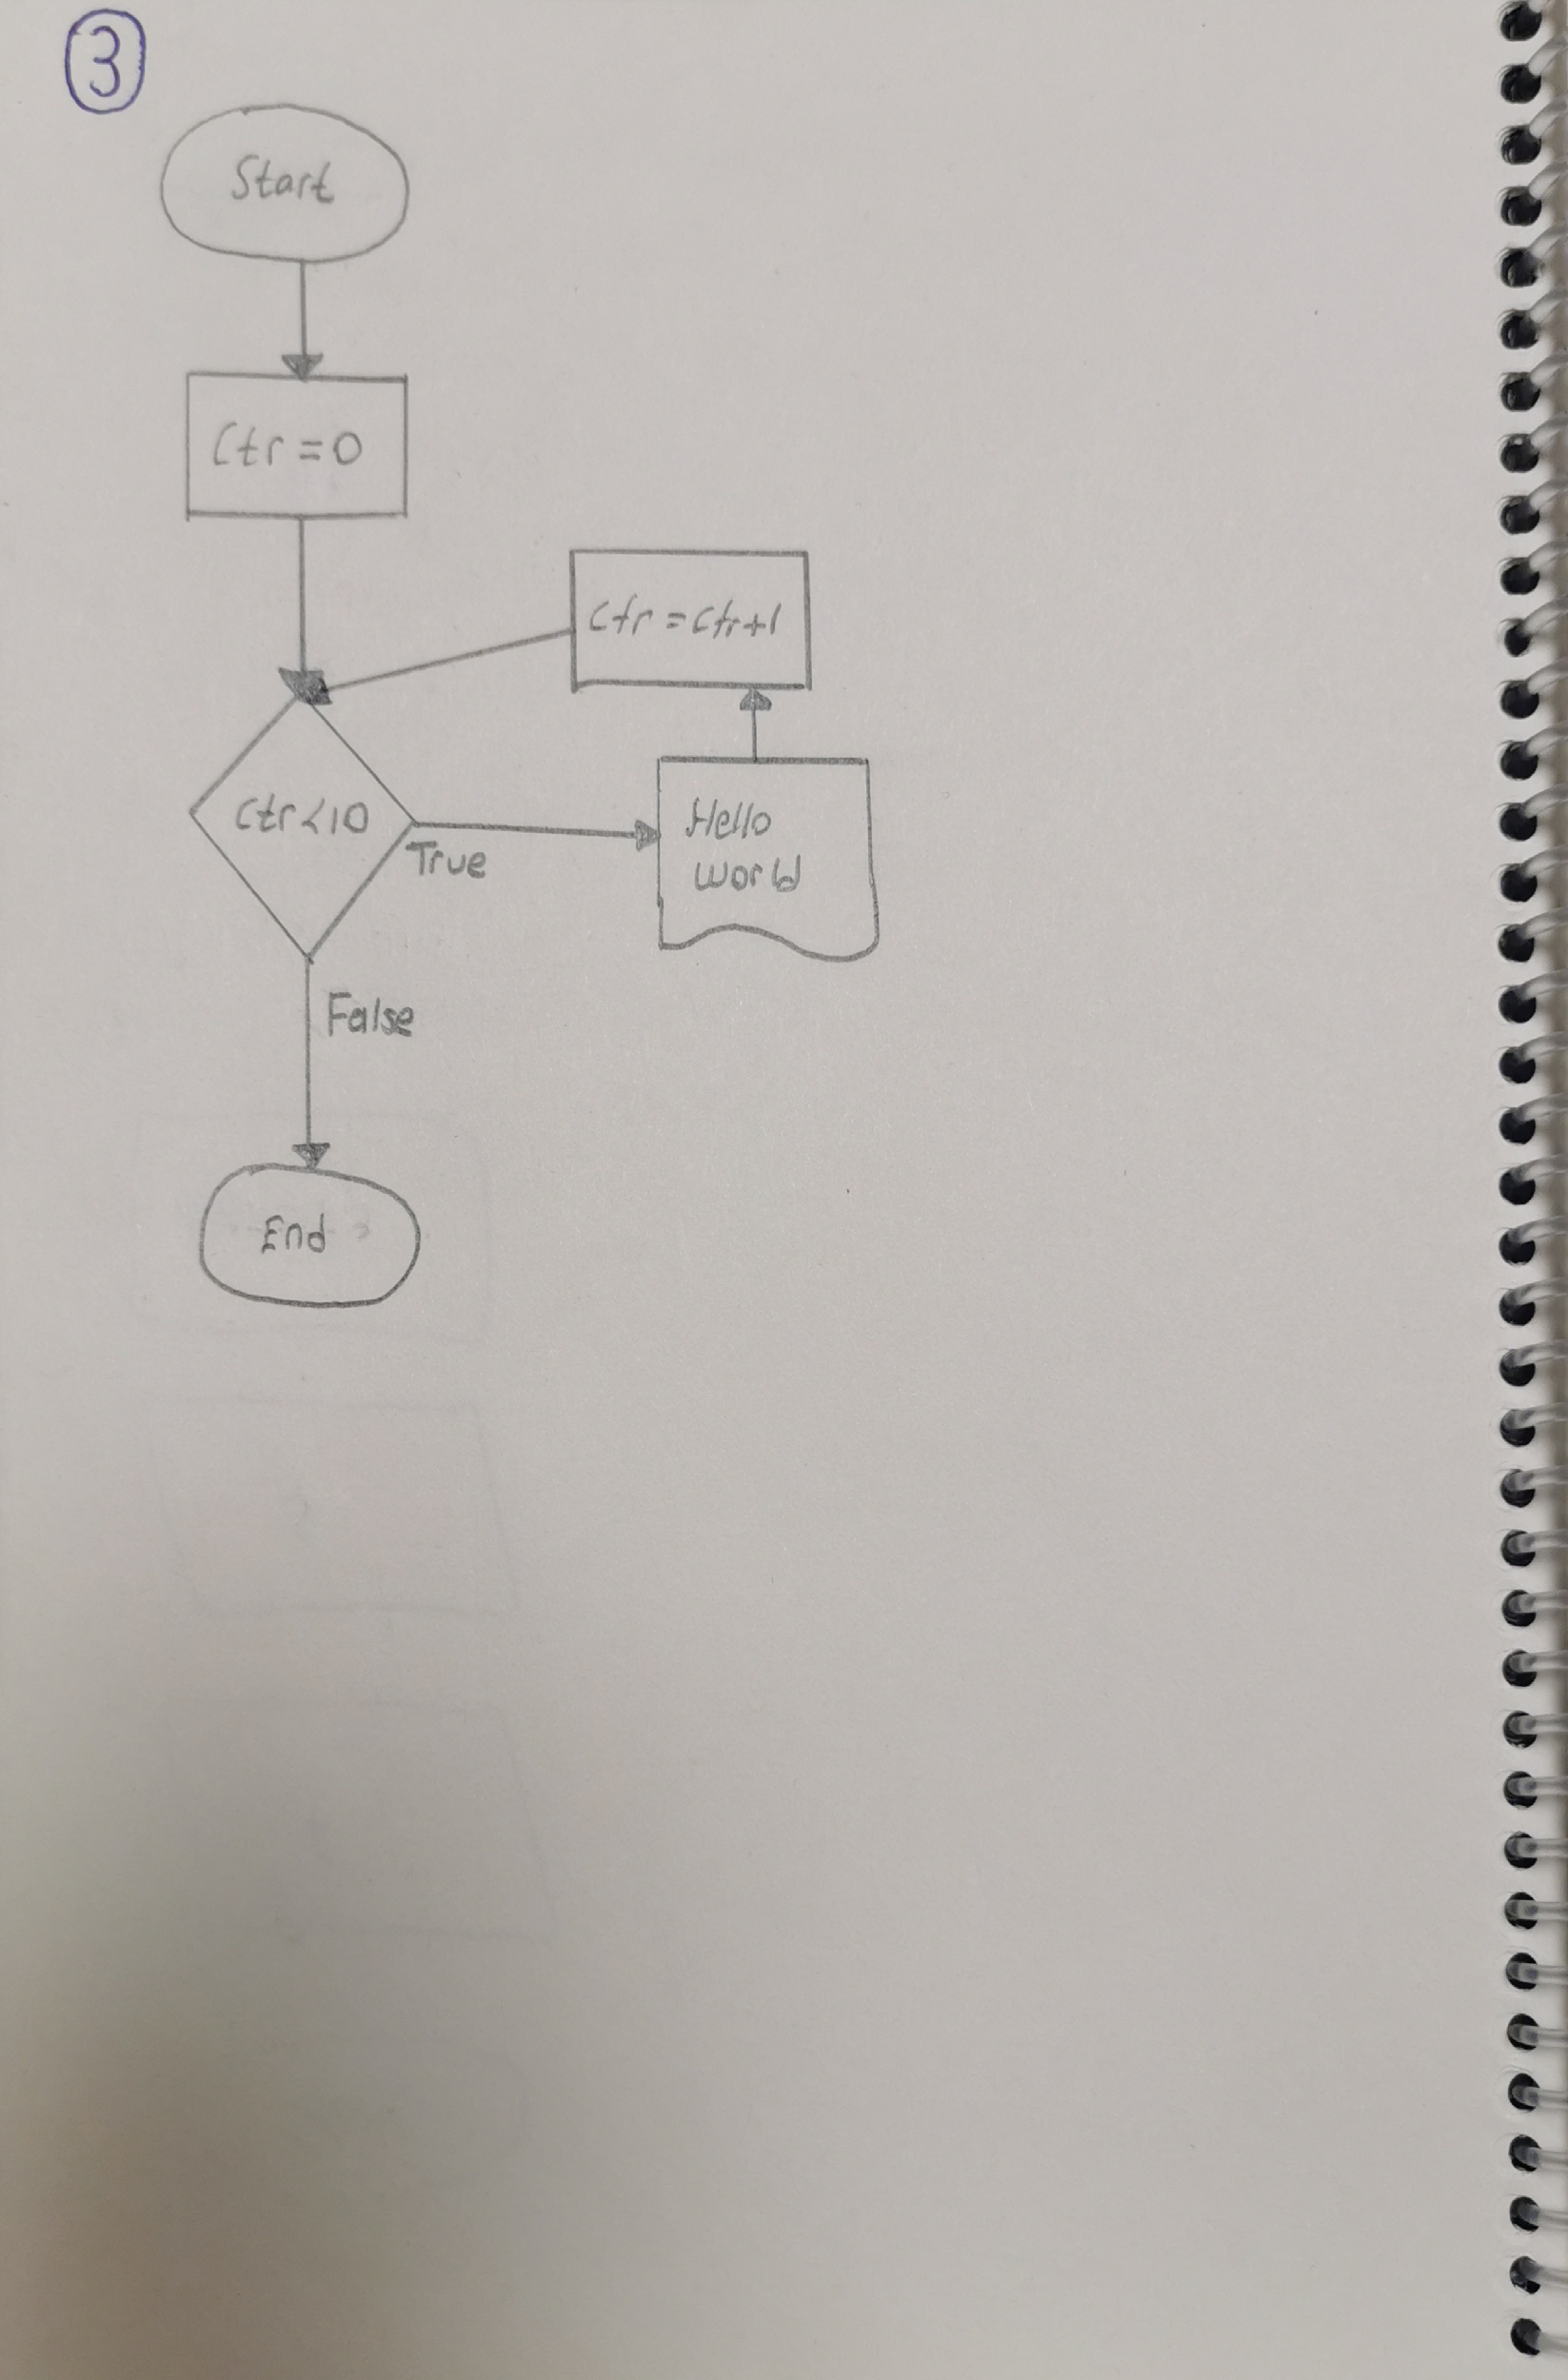 3
Start
Ctr = 0
Ctr = Ctr+1
Ctr < 10
True
Hello
world
False
End